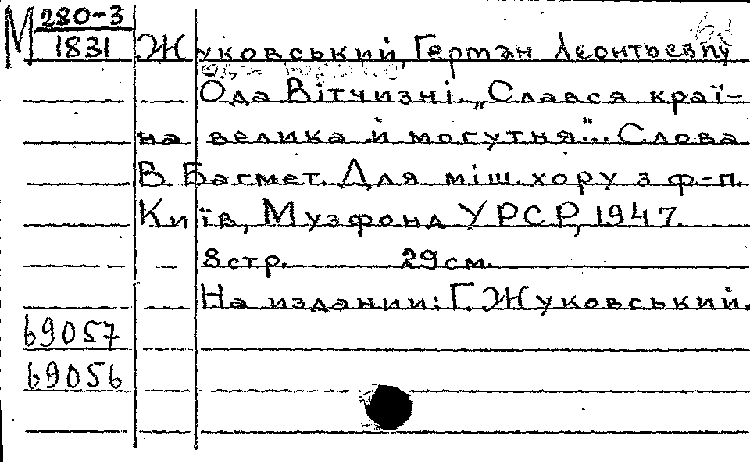 М 280-3
1831
Жуковський, Герман Леонтьевич
Ода Вітчизні. „Слався краї-
на велика й могутня"... Слова
В. Багмет. Для міш. хору з ф-п.
Київ, Музфонд УРСР, 1947.
8 стр. 29 см.
На издании: Г. Жуковський.
69057
69056